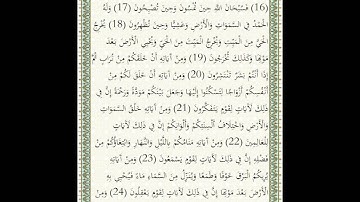 (16) فَسُبْحَانَ اللَّهِ حِينَ تُمْسُونَ وَحِينَ تُصْبِحُونَ (17) وَلَهُ
الْحَمْدُ فِي السَّمَوَاتِ وَالْأَرْضِ وَعَشِيًّا وَحِينَ تُظْهِرُونَ (18) يُخْرِجُ
الْحَيَّ مِنَ الْمَيِّتِ وَيُخْرِجُ الْمَيِّتَ مِنَ الْحَيِّ وَيُحْيِي الْأَرْضَ بَعْدَ
مَوْتِهَا وَكَذَلِكَ تُخْرَجُونَ (19) وَمِنْ آيَاتِهِ أَنْ خَلَقَكُمْ مِنْ تُرَابٍ ثُمَّ
إِذَا أَنْتُمْ بَشَرٌ تَنْتَشِرُونَ (20) وَمِنْ آيَاتِهِ أَنْ خَلَقَ لَكُمْ مِنْ
أَنْفُسِكُمْ أَزْوَاجًا لِتَسْكُنُوا إِلَيْهَا وَجَعَلَ بَيْنَكُمْ مَوَدَّةً وَرَحْمَةً إِنَّ فِي
ذَلِكَ لَآيَاتٍ لِقَوْمٍ يَتَفَكَّرُونَ (21) وَمِنْ آيَاتِهِ خَلْقُ السَّمَوَاتِ
وَالْأَرْضِ وَاخْتِلَافُ أَلْسِنَتِكُمْ وَأَلْوَانِكُمْ إِنَّ فِي ذَلِكَ لَآيَاتٍ
لِلْعَالِمِينَ (22) وَمِنْ آيَاتِهِ مَنَامُكُمْ بِاللَّيْلِ وَالنَّهَارِ وَابْتِغَاؤُكُمْ مِنْ
فَضْلِهِ إِنَّ فِي ذَلِكَ لَآيَاتٍ لِقَوْمٍ يَسْمَعُونَ (23) وَمِنْ آيَاتِهِ
يُرِيكُمُ الْبَرْقَ خَوْفًا وَطَمَعًا وَيُنَزِّلُ مِنَ السَّمَاءِ مَاءً فَيُحْيِي بِهِ
الْأَرْضَ بَعْدَ مَوْتِهَا إِنَّ فِي ذَلِكَ لَآيَاتٍ لِقَوْمٍ يَعْقِلُونَ (24) وَمِنْ